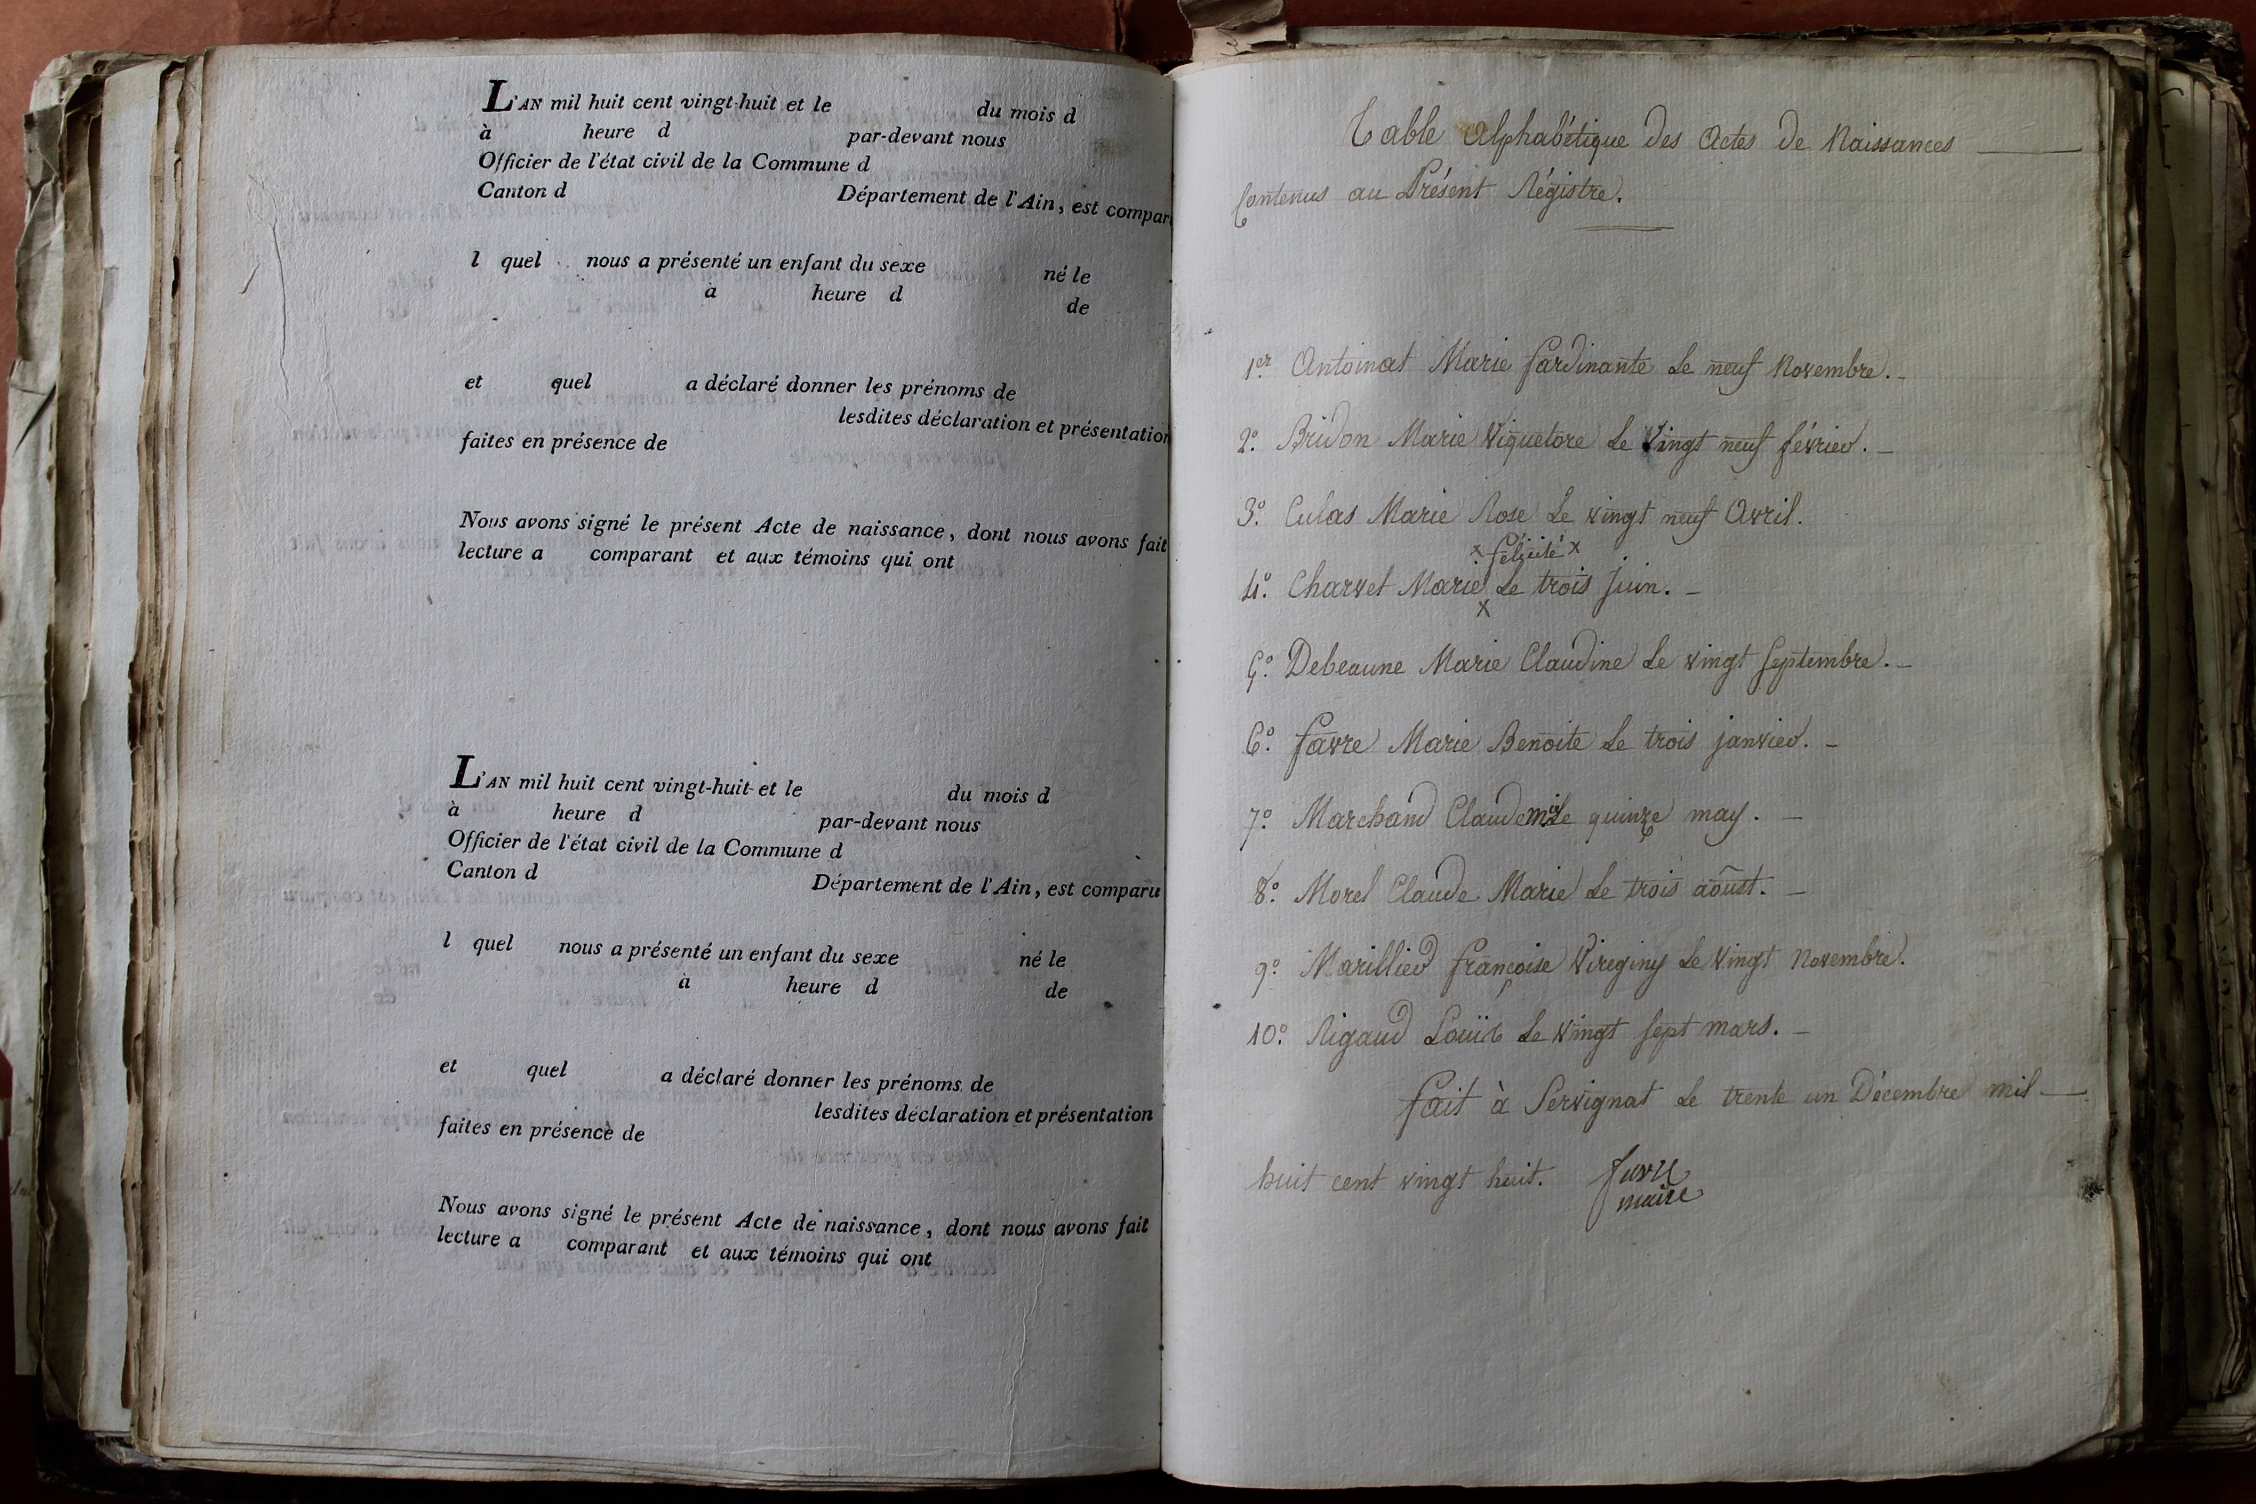 L'AN mil huit cent vingt-huit et le du mois d
à heure d par-devant nous
Officier de l'état civil de la Commune d
Canton d Département de l'Ain, est compar
l quel nous a présenté un enfant du sexe né le
à heure d de
et quel a déclaré donner les prénoms de
lesdites déclaration et présentation
faites en présence de
Nous avons signé le présent Acte de naissance, dont nous avons fait
lecture a comparant et aux témoins qui ont
L'AN mil huit cent vingt-huit et le du mois d
à heure d par-devant nous
Officier de l'état civil de la Commune d
Canton d Département de l'Ain, est comparu
l quel nous a présenté un enfant du sexe né le
à heure d de
et quel a déclaré donner les prénoms de
lesdites déclaration et présentation
faites en présence de
Nous avons signé le présent Acte de naissance, dont nous avons fait
lecture a comparant et aux témoins qui ont
Table Alphabétique des Actes de Naissances
Contenus au Présent Régistre.
1er Antoinat Marie fardinante le neuf Novembre.
2o. Bridon Marie Viquetore le Vingt neuf février.
3o. Culas Marie Rose le vingt neuf Avril.
x félicité x
4o. Charvet Marie x le trois juin.
5o. Debeaune Marie Claudine le vingt septembre.
6o. favre Marie Benoite le trois janvier.
7o. Marchand Claude le quinze may.
8o. Morel Claude Marie le trois aoûst.
9o. Marillier françoise Vireginy le Vingt Novembre.
10o. Rigaud Louis le vingt sept mars.
fait à Servignat le trente un Décembre mil
huit cent vingt huit. favre
maire